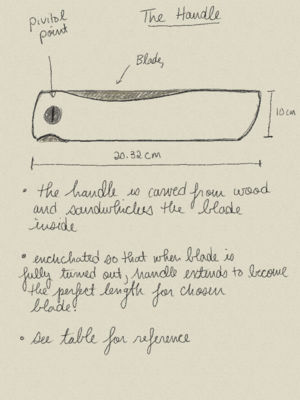 The Handle
pivital
point
Blade
10 cm
20.32 cm
• the handle is carved from wood
and sandwhiches the blade
inside
• enchchated so that when blade is
fully turned out, handle extends to become
the perfect length for chosen
blade.
• see table for reference